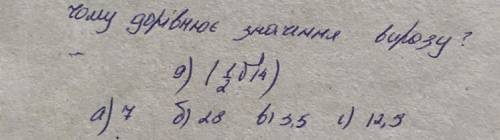 чому дорівнює значення виразу?
9) (1/2 б14)
а) 7 б) 28 в) 3,5 г) 12,5